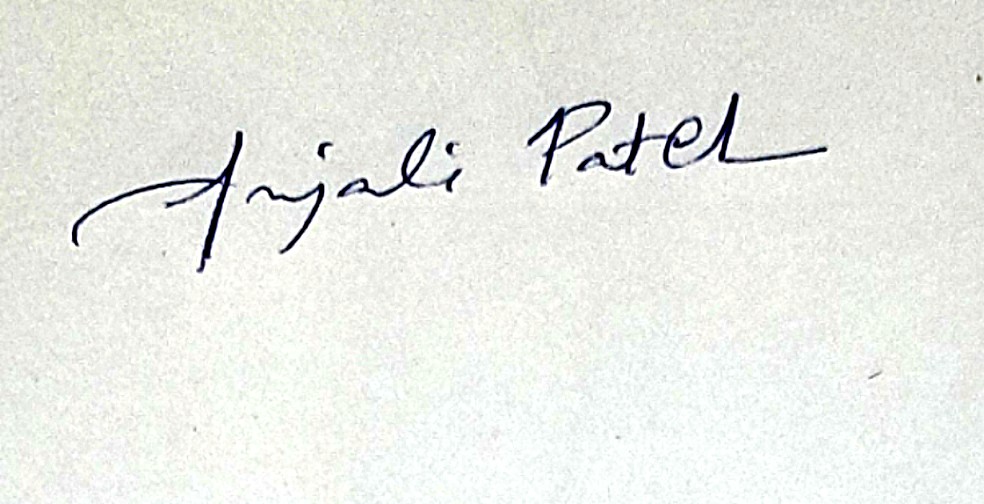 Anjali Patel